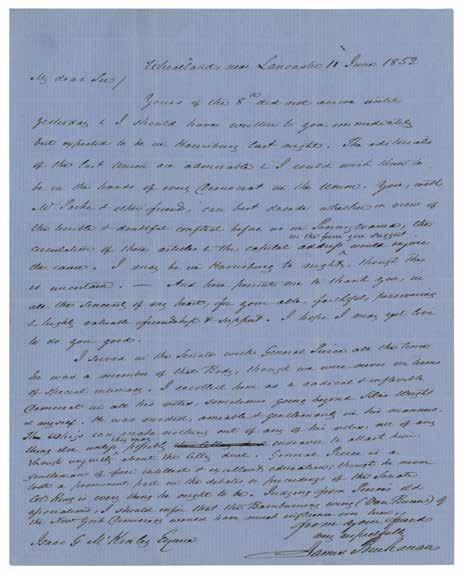 Wheatland, near Lancaster 11 June 1852
My dear Sir/
Yours of the 8th did not arrive until
yesterday & I should have written to you immediately
but expected to be in Harrisburg last night. The editorials
of the last Union are admirable & I could wish them to
be in the hands of every Democrat in the Union. You, with
Mr Packer & other friends, can best decide whether in view of
the terrible & doubtful contest before us in Pennsylvania, the
in the form you suggest
circulation of these articles & the capital address would injure
the cause. I may be in Harrisburg to night, though this
is uncertain. — And now permit me to thank you, in
all the sincerity of my heart, for your able, faithful, persevering
& highly valuable friendship & support. I hope I may yet live
to do you good.
I served in the Senate with General Pierce all the time
he was a member of that Body, though we were never on terms
of special intimacy. I recollect him as a radical & inflexible
Democrat in all his votes, sometimes going beyond Silas Wright
& myself. He was modest, amiable & gentlemanly in his manners.
The Whigs can make nothing out of any of his votes, nor of any
they may
thing else unless, possibly endeavor to attack him
though unjustly about the Cilley duel. General Pierce is a
gentleman of fine intellect & excellent education; though he never
took a prominent part in the debates or proceedings of the Senate
Col: King is every thing he ought to be. Judging from Pierce's old
associations, I should infer that the Barnburning wing (Van Buren) of
the New York Democracy would have most influence over him.
from your friend
very respectfully
James Buchanan
Isaac G. McKinley Esquire